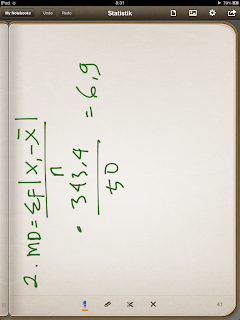 iPad
8:01
79%
My Notebooks Undo Redo Statistik
2. MD = Σf |xᵢ - x̄|
n
= 343,4 = 6,9
50
41